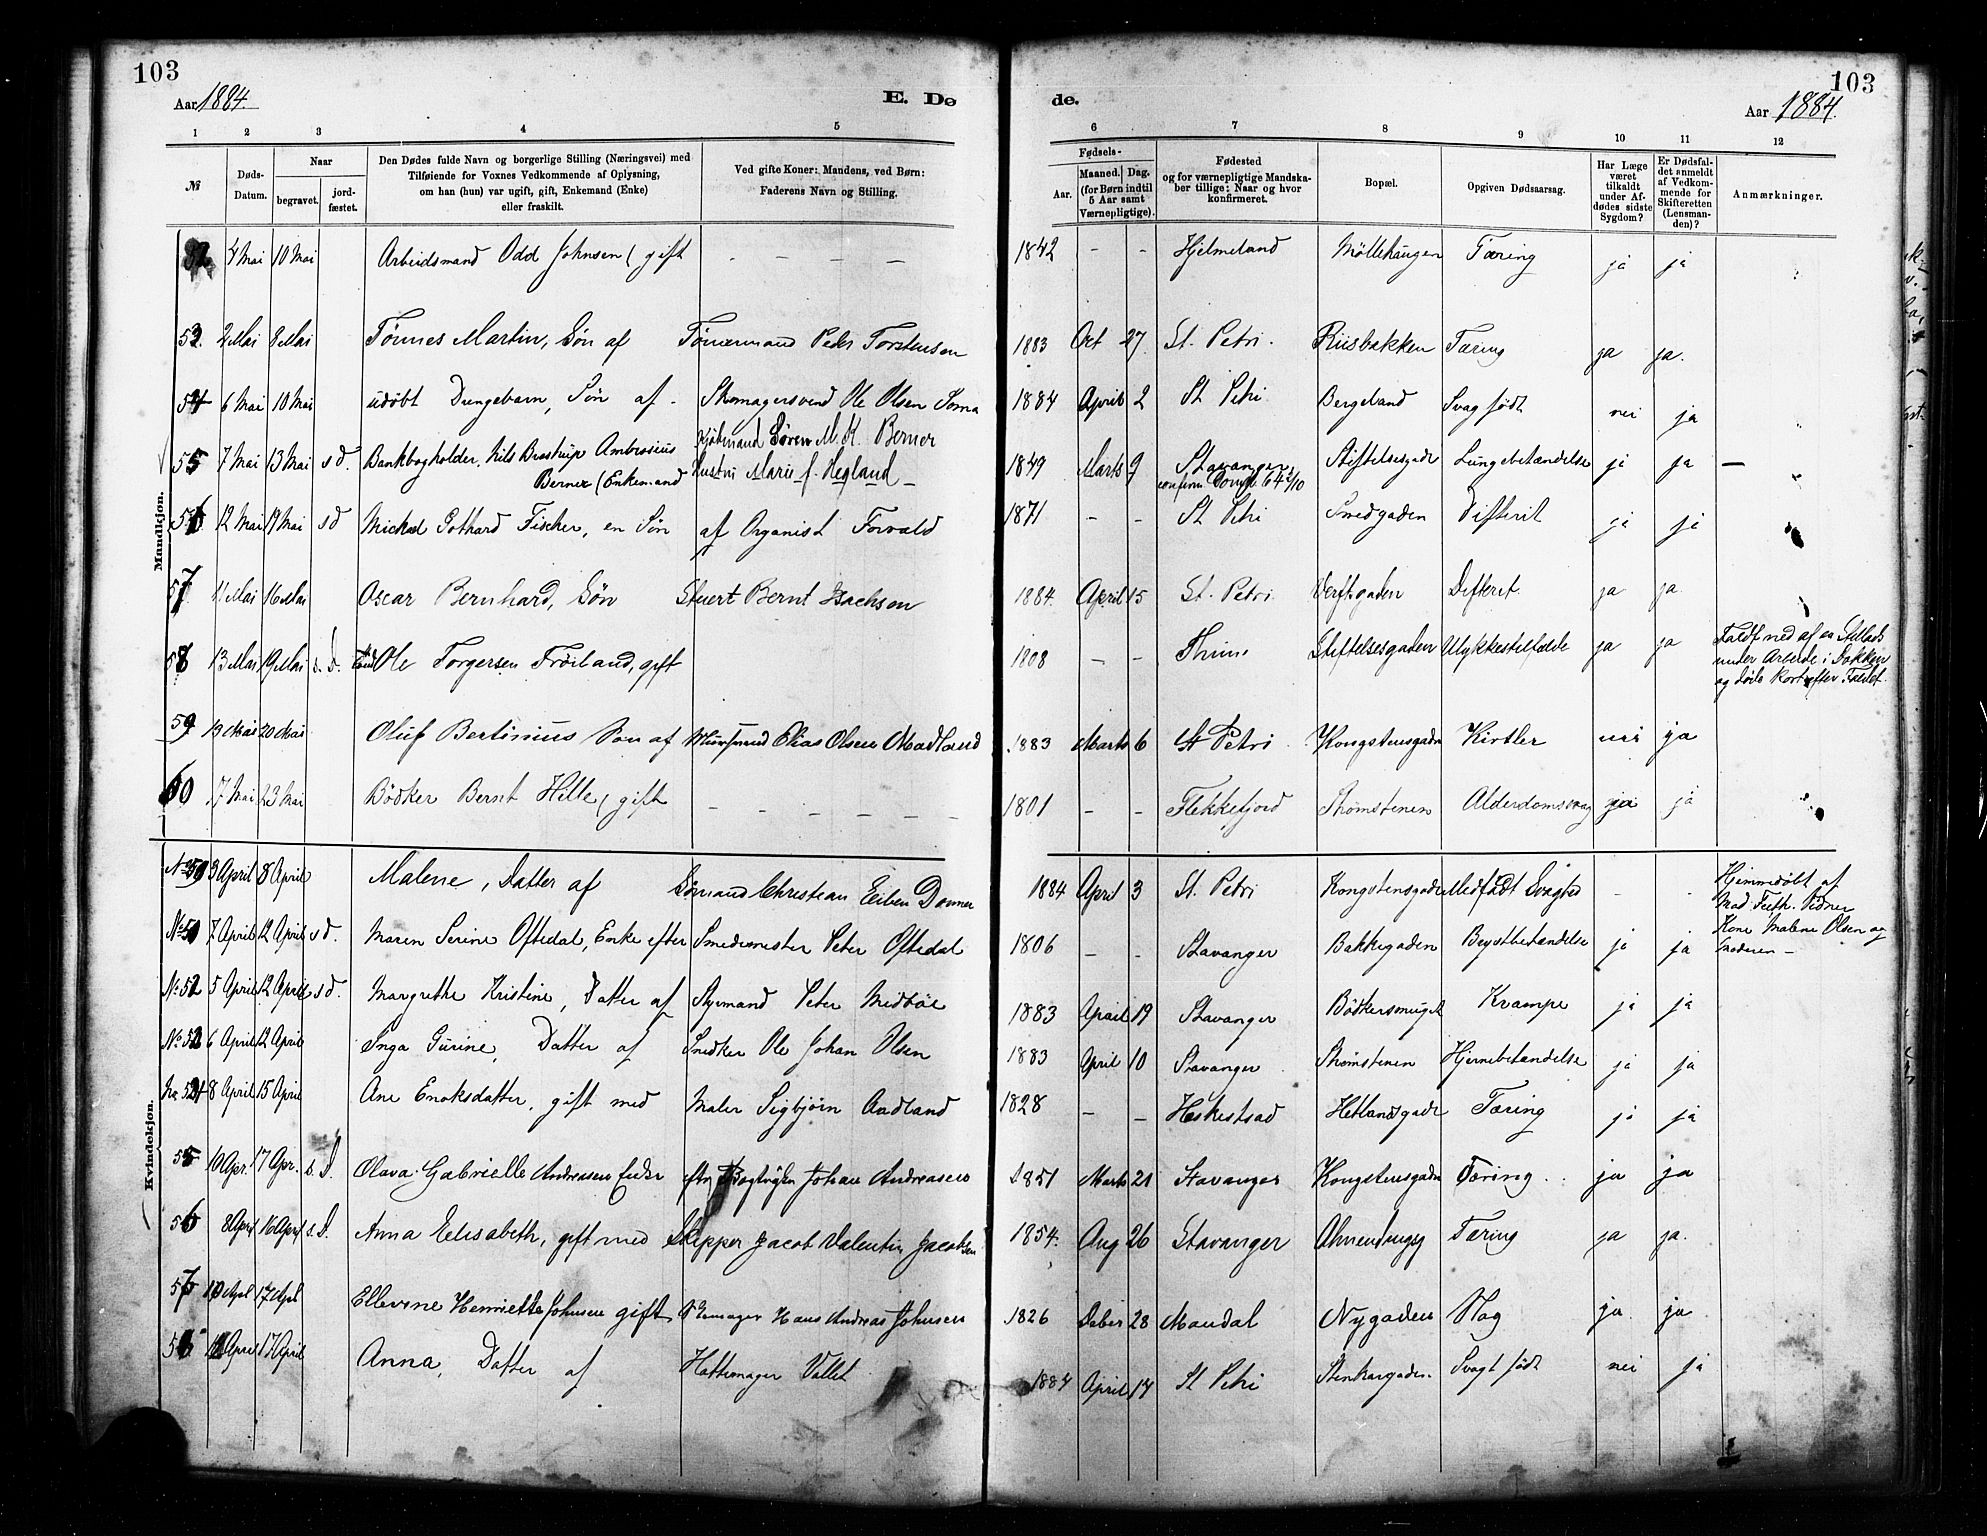 103
103
Aar 1884.
E. Dø
de.
Aar 1884.
1 2 3 4 5 6 7 8 9 10 11 12
№
Døds-Datum.
Naar
begravet.
jord-fæstet.
Den Dødes fulde Navn og borgerlige Stilling (Næringsvei) med
Tilføiende for Voxnes Vedkommende af Oplysning,
om han (hun) var ugift, gift, Enkemand (Enke)
eller fraskilt.
Ved gifte Koner: Mandens, ved Børn:
Faderens Navn og Stilling.
Fødsels-
Aar.
Maaned. Dag.
(for Børn indtil
5 Aar samt
Værnepligtige).
Fødested
og for værnepligtige Mandska-
ber tillige: Naar og hvor
konfirmeret.
Bopæl.
Opgiven Dødsaarsag.
Har Læge
været
tilkaldt
under Af-
dødes sidste
Sygdom?
Er Dødsfal-
det anmeldt
af Vedkom-
mende for
Skifteretten
(Lensman-
den)?
Anmærkninger.
Mandkjøn.
52 4 Mai 10 Mai Arbeidsmand Odd Johnsen ( gift — — — — 1842 - - Hjelmeland Möllehaugen Tæring ja ja
53. 2 Mai 8 Mai Tønnes Martin, Søn af Tømermand Peder Torstensen 1883 Oct 27 St. Petri. Riisbakken Tæring ja ja.
54 6 Mai 10 Mai udøbt Drengebarn, Søn af Skomagersvend Ole Olsen Soma 1884 April 2 St Petri Bergeland Svag født nei ja
55 7 Mai 13 Mai s d. Bankbogholder, Nils Brostrup Ambrosius Kjøbmand Søren M. K. Berner 1849 Marts 9 Stavanger Stiftelsesgade Lungebetændelse ja ja —
Berner (Enkemand Hustru Marie f. Hegland —
56 12 Mai 17 Mai s d Mickal Gothard Fischer, en Søn af Organist Torvald 1871 - - St Petri Smedgaden Difterit ja ja
57 11 Mai 16 Mai Oscar Bernhard, Søn Stuert Bernt Isachsen 1884. April 15 St. Petri Verftsgaden Difterit. ja ja
58 13 Mai 19 Mai s. d. Ole Torgersen Frøiland, gift 1808 - - Thime Stiftelsesgaden Ulykkestilfælde ja ja Faldt ned af en Stillads
under Arbeide i Dokken
og døde kort efter Faldet.
59 13 Mai 20 Mai Oluf Bertinius Søn af Murmand Elias Olsen Madland 1883 Marts 6 St Petri Kongstensgaden Kirtler nei ja
60 17 Mai 23 Mai Bödker Bernt Hille ( gift — — — — 1801 - - Flekkefjord Strømstenen Alderdomssvag ja ja
Kvindekjøn.
No 50 3 April 8 April Malene, Datter af Sömand Christian Donner 1884 April 3 St. Petri Kongstensgade Medfødt Svaghed - - Hjemmedøbt af
Kone Malene Olsen og
Moderen —
No 51 7 April 12 April s d. Maren Serine Oftedal, Enke efter Smedemester Peter Oftedal 1806 - - Stavanger Bakkegaden Brystbetændelse ja ja
No 52 5 April 12 April s d. Margrethe Kristine, Datter af Styrmand Peter Midbøe 1883 April 19 Stavanger Bödkersmuget Krampe ja ja
No 53 6 April 12 April Inga Gurine, Datter af Snedker Ole Johan Olsen 1883 April 10 Stavanger Strømstenen Hjernebetændelse ja ja
No 54 8 April 15 April Ane Enoksdatter, gift med Maler Sigbjørn Aadland 1828 - - Heskestad Hetlandsgade Tæring ja ja
55 10 Apr. 17 Apr. s. d. Olava Gabrielle Andreasen Enke efter Johan Andreasen 1851 Marts 21 Stavanger Kongstensgaden Tæring ja ja
56 8 April 16 April s. d. Anna Elisabeth, gift med Skipper Jacob Valentin Jacobsen 1854. Aug 26 Stavanger Tæring ja ja.
57 10 Apl 17 Apl Ellevine Henriette Johnsen gift Skomager Hans Andreas Johnsen 1826 Deber 28 Mandal Nygaden Slag ja ja
58 April 17 April Anna, Datter af Hattemager Vallet 1884 April 14 St Petri Stenkargaden Svagt født nei ja